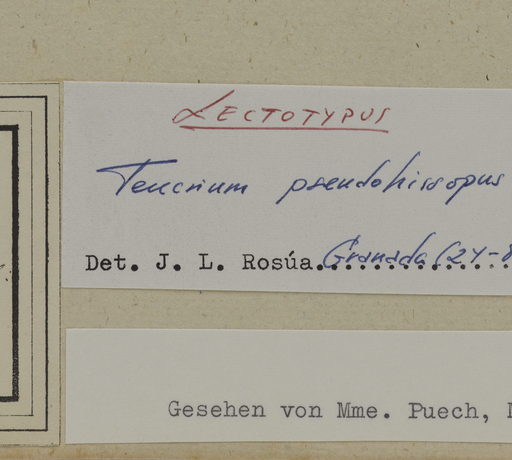 LECTOTYPUS
Teucrium pseudohissopus
Det. J. L. Rosúa. Granada (24-8
Gesehen von Mme. Puech,